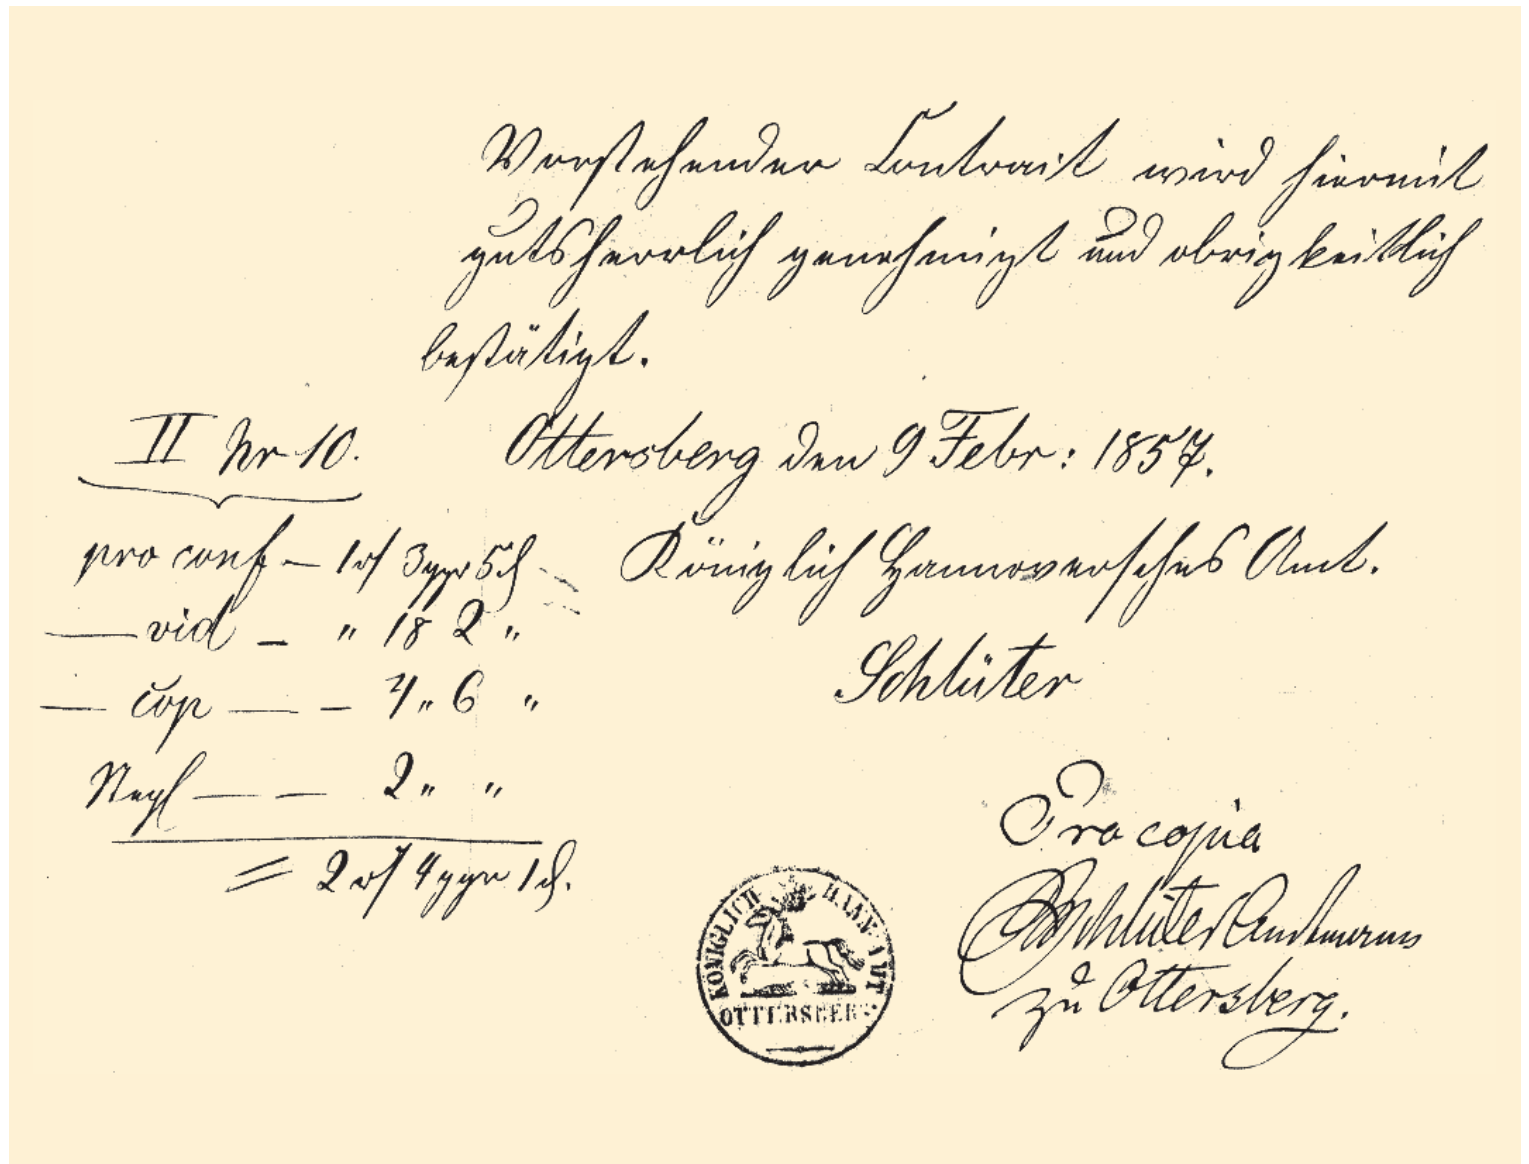 Vorstehender Contract wird hiermit
gutsherrlich genehmigt und obrigkeitlich
bestätigt.
Ottersberg den 9 Febr: 1857.
Königlich Hannoversches Amt.
Schlüter
II Nr 10.
pro conf — 1 rf 3 ggr 5 d
— vid — " 18 2 "
— cop — — 4 " 6 "
— — 2 " "
= 2 rf 4 ggr 1 d.
Pro copia
Schlüter Amtmann
zu Ottersberg.
KÖNIGLICH HANN. AMT
OTTERSBERG.